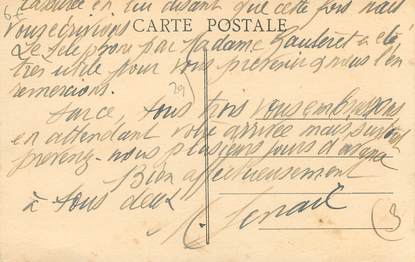 en lui disant que cette fois nous
vous écrivions
CARTE POSTALE
Le téléphone par Madame a été
très utile pour vous prévenir, nous l'en
remercions.
29
Sur ce, tous trois vous embrassons
en attendant votre arrivée mais surtout
prévenez-nous plusieurs jours d'avance
Bien affectueusement
à tous deux
3